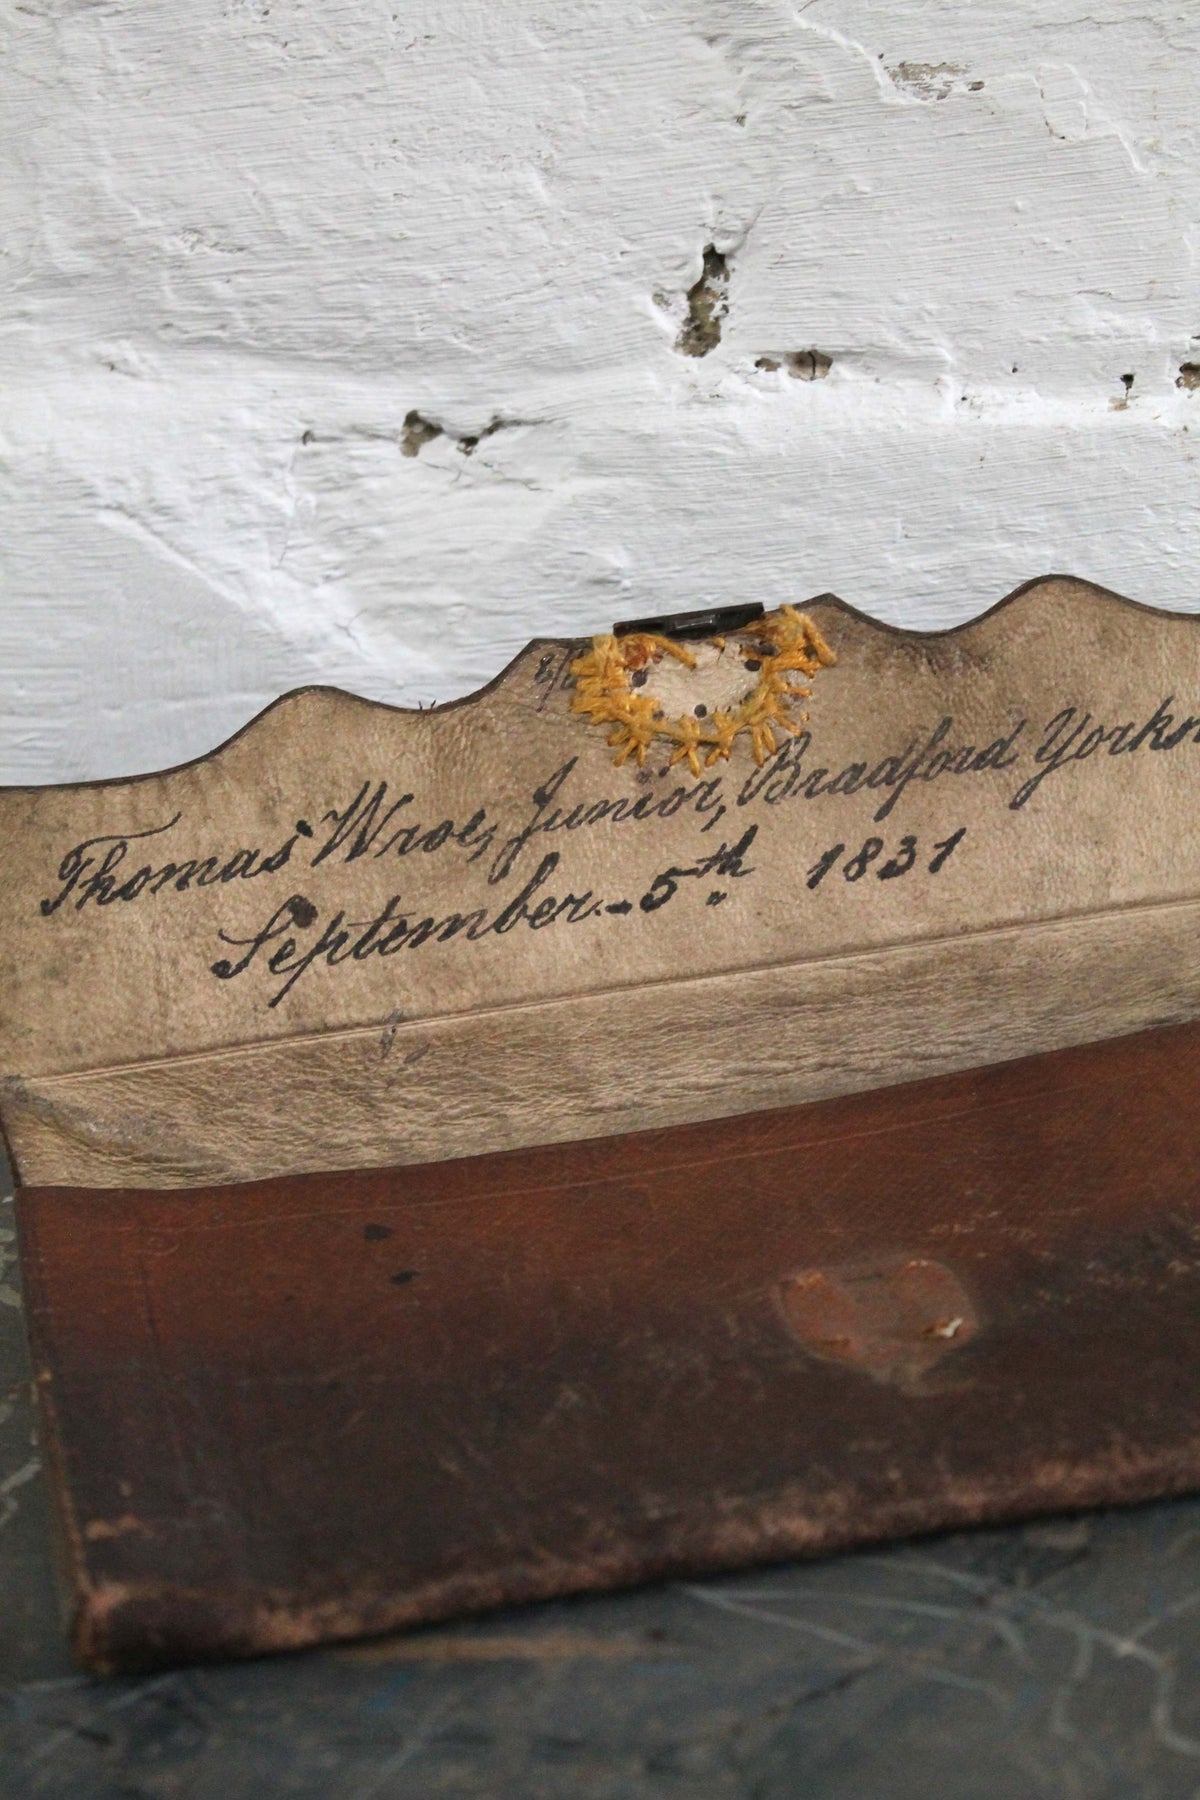 Thomas Wroe, Junior, Bradford Yorksh
September 5th 1831